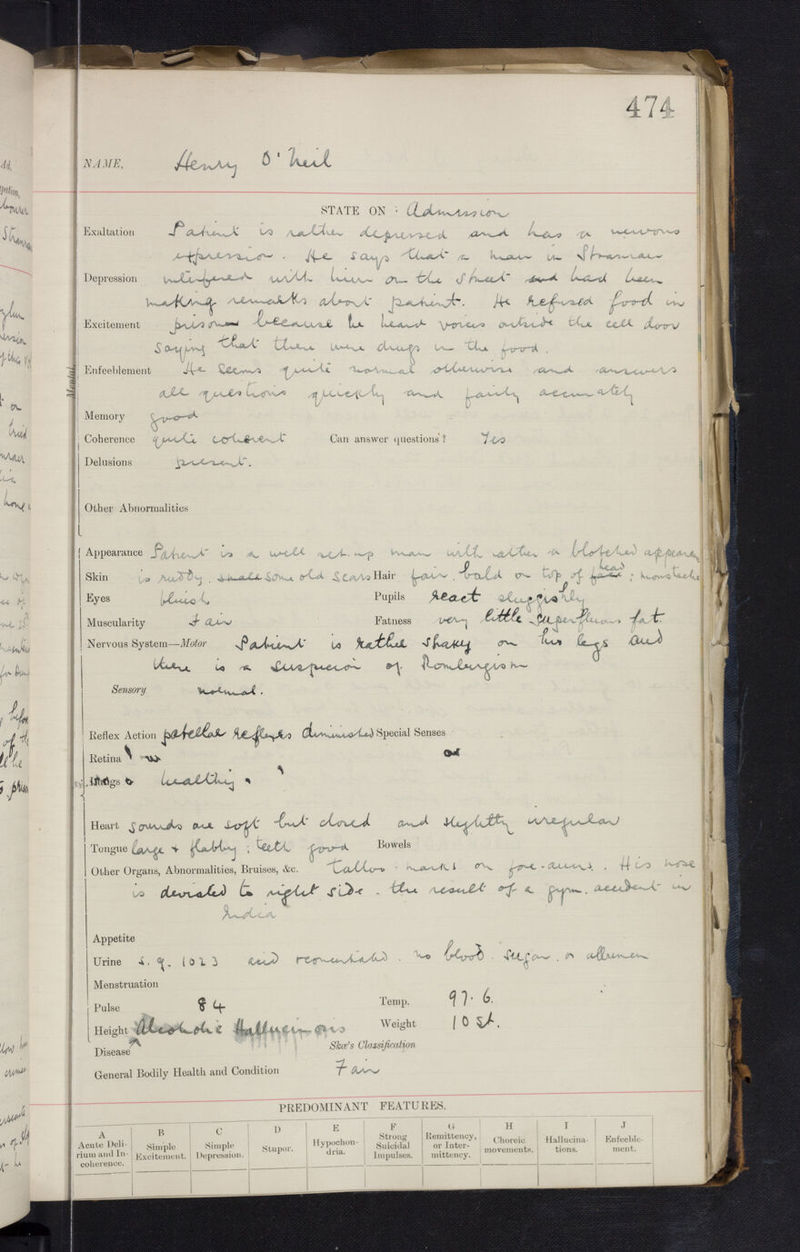 474
NAME, Henry O'Neil
STATE ON Admission
Exaltation Patient is rather depressed and has a nervous
expression. He says that a man in Stranraer
Depression interfered with him on the street and had been
making remarks about patient. He refused food in
Excitement prison because he heard voices outside the cell door
saying that there were drugs in the food.
Enfeeblement He seems quite normal otherwise and answers
all questions quickly and fairly accurately
Mental
Memory good
Coherence quite coherent Can answer questions? Yes
Delusions present.
Other Abnormalities
Appearance Patient is a well set-up man with rather a blotched appearance
Skin is ruddy. some old scars Hair fair, bald on top of head; moustache
Eyes bluish Pupils React sluggishly
Muscularity Fair Fatness very little superfluous fat.
Nervous System—Motor Patient is rather shaky on his legs and
there is a suspicion of Rombergism
Sensory normal.
Reflex Action patellar reflexes diminished Special Senses
Retina
Lungs healthy
Heart sounds are soft but closed and slightly irregular
Tongue large + flabby; teeth good Bowels
Other Organs, Abnormalities, Bruises, &c. Tattoo-marks on fore-arms. His nose
is deviated to right side. the result of a gym. accident in
India
Appetite
Urine s.g. 1023 acid no blood. sugar. or albumen
Menstruation
Pulse 84 Temp. 97.6.
Height Weight 10 St.
Disease Alcoholic Skae's Classification
General Bodily Health and Condition Fair
PREDOMINANT FEATURES.
A B C D E F G H I J
Acute Delirium and Incoherence. Simple Excitement. Simple Depression. Stupor. Hypochondria. Strong Suicidal Impulses. Remittency, or Intermittency. Choreic movements. Hallucinations. Enfeeblement.